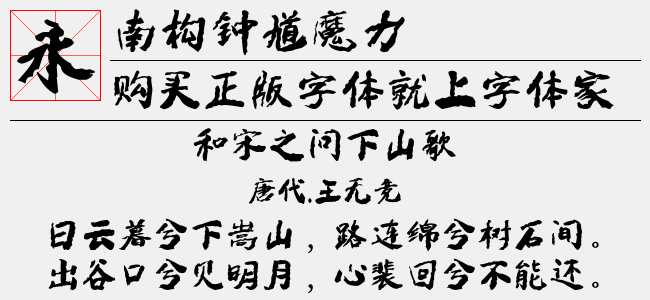 永
南构钟馗魔力
购买正版字体就上字体家
和宋之问下山歌
唐代.王无竞
日云暮兮下嵩山，路连绵兮树石间。
出谷口兮见明月，心裴回兮不能还。